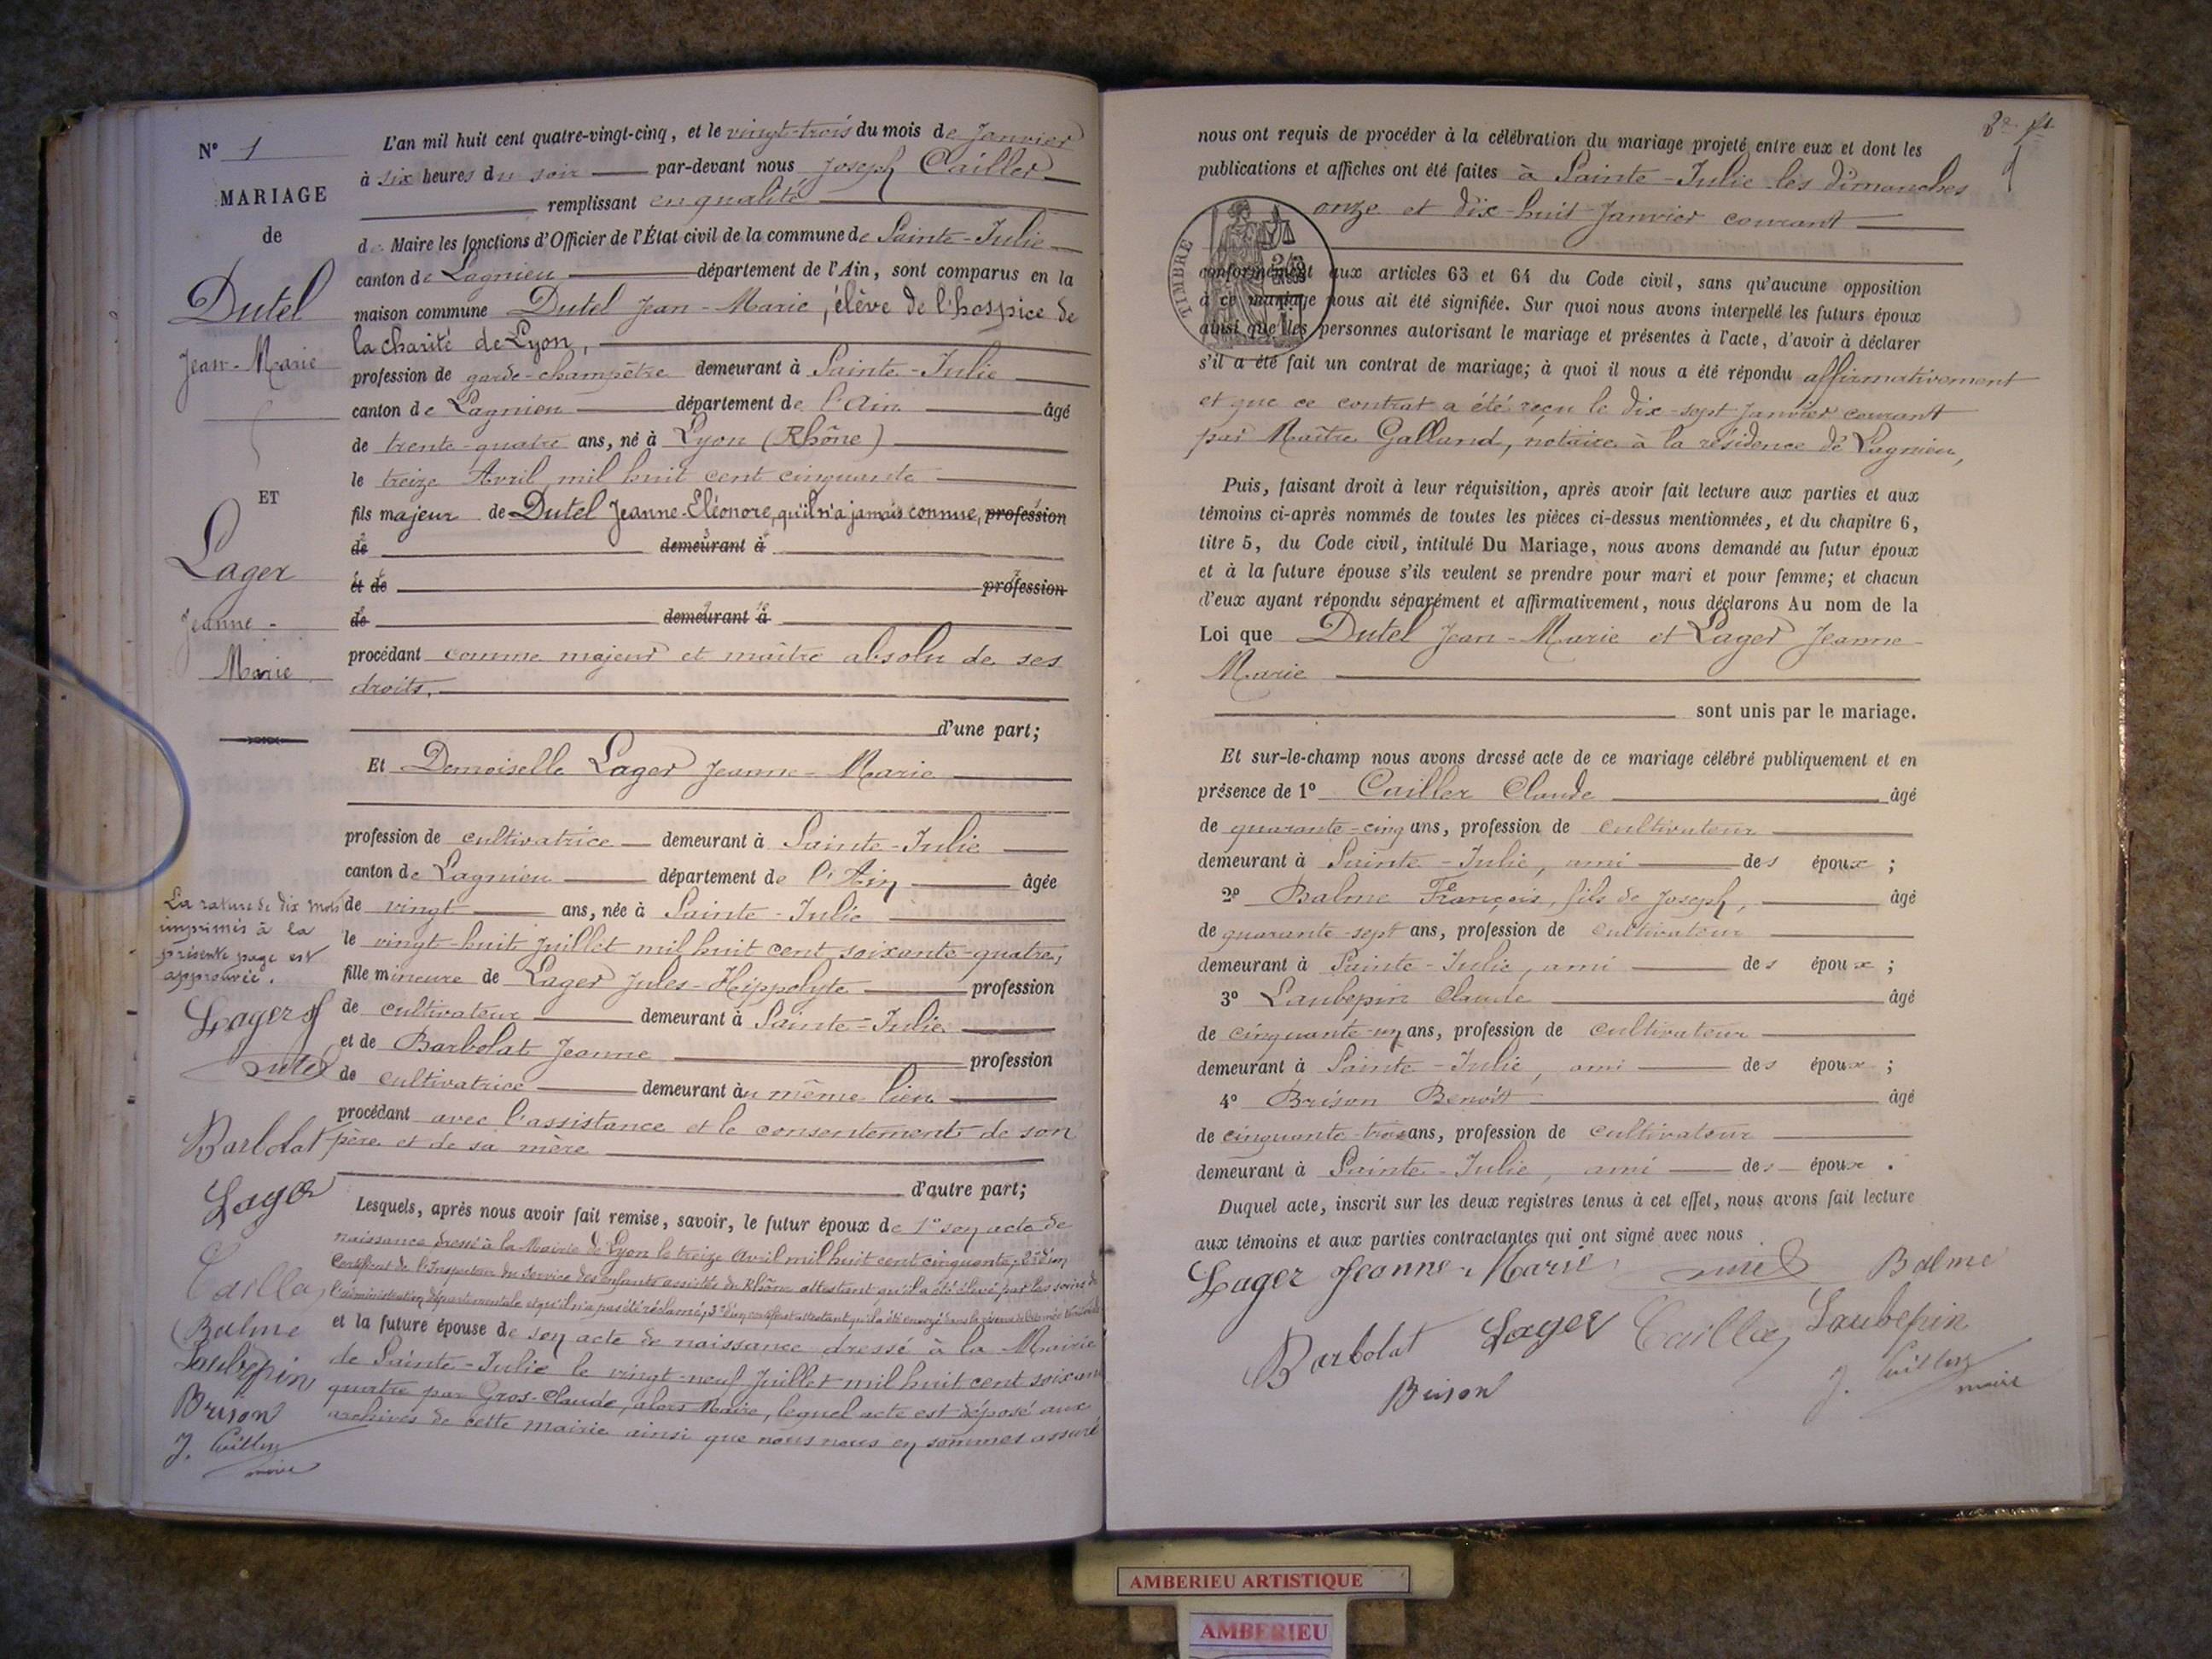 N° 1
MARIAGE
de
Dutel
Jean-Marie
ET
Lager
Jeanne-
Marie
La rature de dix mots
imprimés à la
présente page est
approuvée.
Lager J
Dutel
Barbolat
Lager
Cailler
Balme
Laubepin
Brison
J. Cailler
maire
L'an mil huit cent quatre-vingt-cinq, et le vingt-trois du mois de Janvier
à six heures du soir par-devant nous Joseph Cailler
remplissant en qualité
de Maire les fonctions d'Officier de l'État civil de la commune de Sainte-Julie
canton de Lagnieu département de l'Ain, sont comparus en la
maison commune Dutel Jean-Marie, élève de l'hospice de
la charité de Lyon,
profession de garde-champêtre demeurant à Sainte-Julie
canton de Lagnieu département de l'Ain âgé
de trente-quatre ans, né à Lyon (Rhône)
le treize Avril mil huit cent cinquante
fils majeur de Dutel Jeanne-Eléonore, qu'il n'a jamais connue, profession
de demeurant à
et de profession
de demeurant à
procédant comme majeur et maître absolu de ses
droits.
d'une part;
Et Demoiselle Lager Jeanne-Marie
profession de cultivatrice demeurant à Sainte-Julie
canton de Lagnieu département de l'Ain âgée
de vingt ans, née à Sainte-Julie
le vingt-huit Juillet mil huit cent soixante-quatre,
fille mineure de Lager Jules-Hippolyte profession
de cultivateur demeurant à Sainte-Julie
et de Barbolat Jeanne profession
de cultivatrice demeurant au même lieu
procédant avec l'assistance et le consentement de son
père et de sa mère
d'autre part;
Lesquels, après nous avoir fait remise, savoir, le futur époux de 1° son acte de
naissance dressé à la Mairie de Lyon le treize Avril mil huit cent cinquante, 2° d'un
Certificat de l'Inspecteur du Service des enfants assistés du Rhône attestant qu'il a été élevé par les soins de
l'administration départementale et qu'il n'a pas été réclamé, 3° d'un certificat attestant qu'il a été envoyé dans la réserve de l'armée
et la future épouse de son acte de naissance dressé à la Mairie
de Sainte-Julie le vingt-neuf Juillet mil huit cent soixante
quatre par Gros-Claude, alors Maire, lequel acte est déposé aux
archives de cette mairie ainsi que nous nous en sommes assuré
nous ont requis de procéder à la célébration du mariage projeté entre eux et dont les
publications et affiches ont été faites à Sainte-Julie les dimanches
onze et dix-huit Janvier courant
TIMBRE
conformément aux articles 63 et 64 du Code civil, sans qu'aucune opposition
à ce mariage nous ait été signifiée. Sur quoi nous avons interpellé les futurs époux
ainsi que les personnes autorisant le mariage et présentes à l'acte, d'avoir à déclarer
s'il a été fait un contrat de mariage; à quoi il nous a été répondu affirmativement
et que ce contrat a été reçu le dix-sept Janvier courant
par Maître Galland, notaire à la résidence de Lagnieu,
Puis, faisant droit à leur réquisition, après avoir fait lecture aux parties et aux
témoins ci-après nommés de toutes les pièces ci-dessus mentionnées, et du chapitre 6,
titre 5, du Code civil, intitulé Du Mariage, nous avons demandé au futur époux
et à la future épouse s'ils veulent se prendre pour mari et pour femme; et chacun
d'eux ayant répondu séparément et affirmativement, nous déclarons Au nom de la
Loi que Dutel Jean-Marie et Lager Jeanne-
Marie
sont unis par le mariage.
Et sur-le-champ nous avons dressé acte de ce mariage célébré publiquement et en
présence de 1° Cailler Claude âgé
de quarante-cinq ans, profession de cultivateur
demeurant à Sainte-Julie, ami des époux;
2° Balme François, fils de Joseph, âgé
de quarante-sept ans, profession de cultivateur
demeurant à Sainte-Julie, ami des époux;
3° Laubepin Claude âgé
de cinquante-un ans, profession de cultivateur
demeurant à Sainte-Julie, ami des époux;
4° Brison Benoît âgé
de cinquante-trois ans, profession de cultivateur
demeurant à Sainte-Julie, ami des époux.
Duquel acte, inscrit sur les deux registres tenus à cet effet, nous avons fait lecture
aux témoins et aux parties contractantes qui ont signé avec nous
Lager Jeanne-Marie Dutel Balme
Barbolat Lager Cailler Laubepin
Brison J. Cailler
maire
AMBERIEU ARTISTIQUE
AMBERIEU